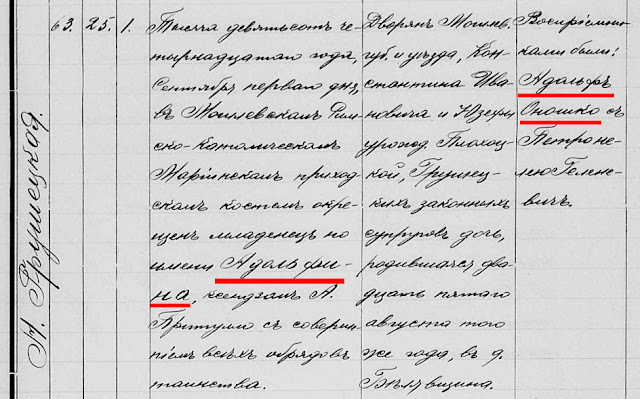 А. Грушецкая.
63. 25. 1.
Тысяча девятьсотъ че-
тырнадцатаго года,
Сентября перваго дня,
въ Могилевскомъ Рим-
ско-Католическомъ
Маріинскомъ приход-
скомъ костелѣ окре-
щенъ младенецъ по
имени Адольфи-
на, ксендзомъ А.
Притулло съ соверше-
ніемъ всѣхъ обрядовъ
таинства.
Дворянъ Могилев.
губ. и уѣзда, Кон-
стантина Ива-
новича и Юзефы
урожд. Плохоц-
кой, Грушец-
кихъ законныхъ
супруговъ дочь,
родившаяся два-
дцать пятаго
августа того
же года, въ д.
Бѣлявщина.
Воспріемни-
ками были:
Адольфъ
Оношко съ
Петроне-
лею Гелене-
вичъ.